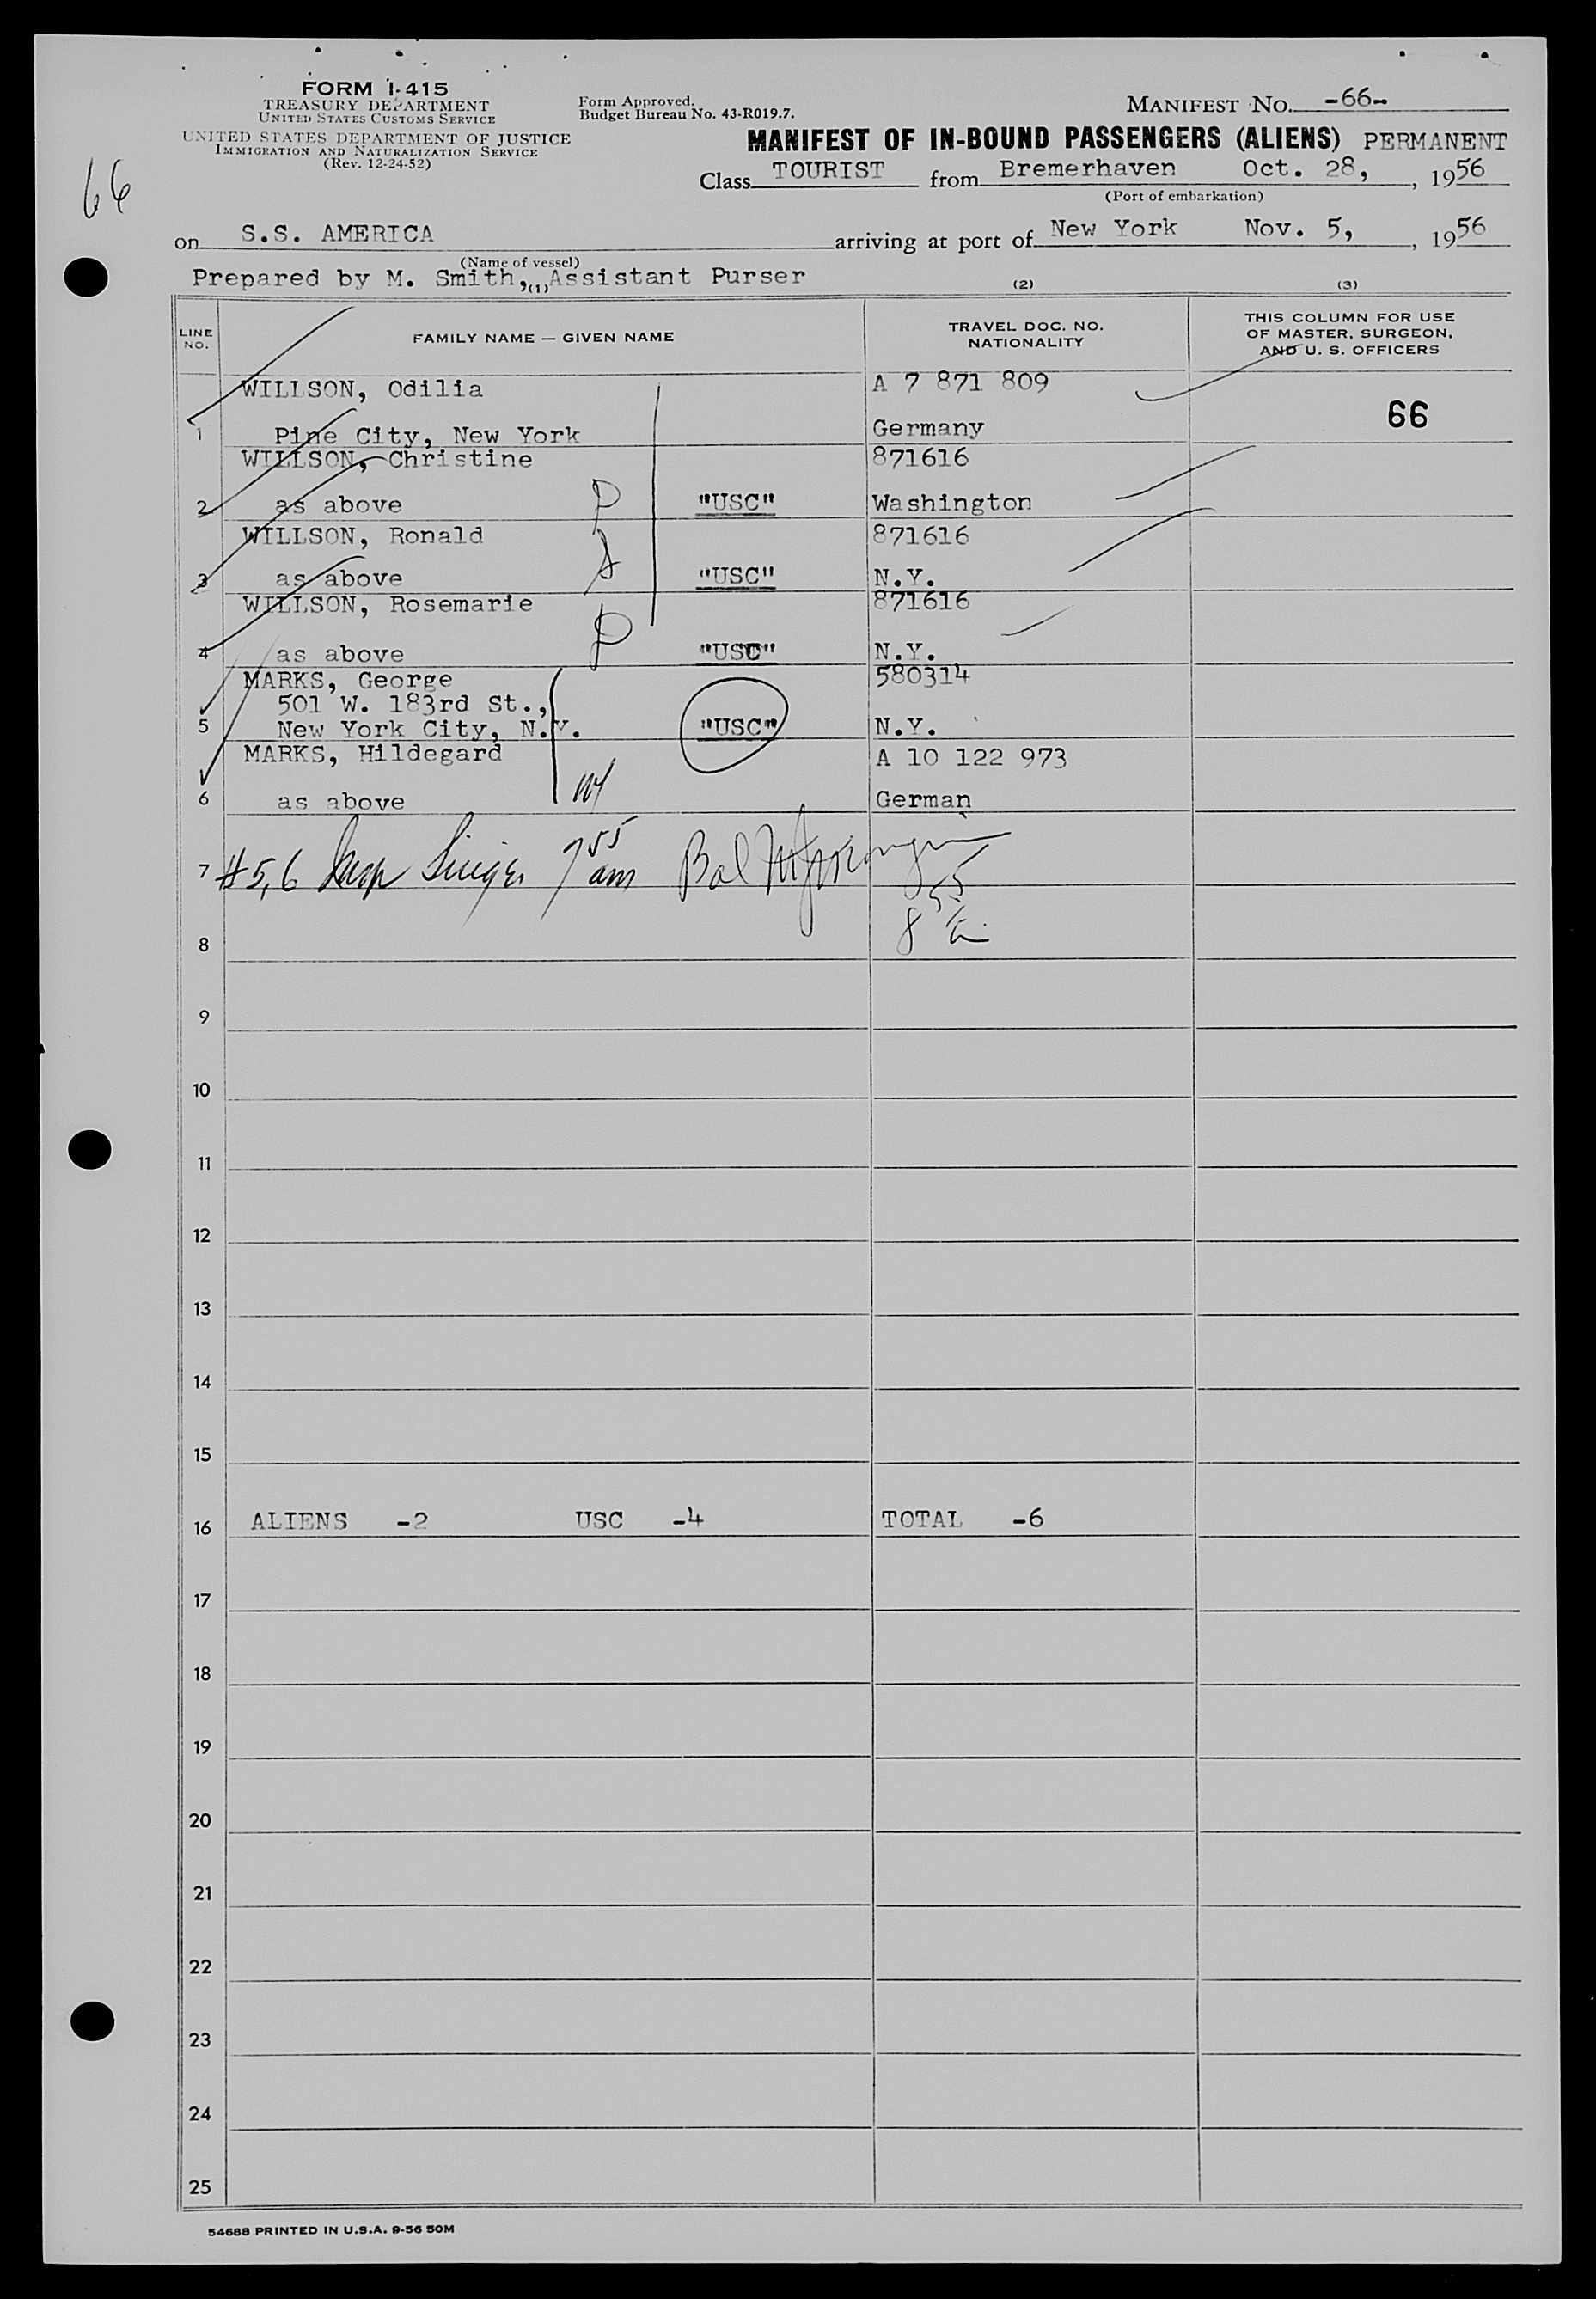 FORM I-415
TREASURY DEPARTMENT
UNITED STATES CUSTOMS SERVICE
UNITED STATES DEPARTMENT OF JUSTICE
IMMIGRATION AND NATURALIZATION SERVICE
(Rev. 12-24-52)
Form Approved.
Budget Bureau No. 43-R019.7.
MANIFEST NO. -66-
MANIFEST OF IN-BOUND PASSENGERS (ALIENS) PERMANENT
Class TOURIST from Bremerhaven Oct. 28, , 1956
(Port of embarkation)
66
on S.S. AMERICA arriving at port of New York Nov. 5, , 1956
(Name of vessel)
Prepared by M. Smith, Assistant Purser
(1) (2) (3)
LINE NO. FAMILY NAME — GIVEN NAME TRAVEL DOC. NO. NATIONALITY THIS COLUMN FOR USE OF MASTER, SURGEON, AND U. S. OFFICERS
WILLSON, Odilia A 7 871 809
66
1 Pine City, New York Germany
WILLSON, Christine 871616
2 as above P "USC" Washington
WILLSON, Ronald 871616
3 as above "USC" N.Y.
WILLSON, Rosemarie 871616
4 as above P "USC" N.Y.
MARKS, George 580314
501 W. 183rd St.,
5 New York City, N.Y. "USC" N.Y.
MARKS, Hildegard A 10 122 973
6 as above German
7 #5,6 Insp Singer 7 55 am
8 8 55
9
10
11
12
13
14
15
16 ALIENS -2 USC -4 TOTAL -6
17
18
19
20
21
22
23
24
25
54688 PRINTED IN U.S.A. 9-56 50M